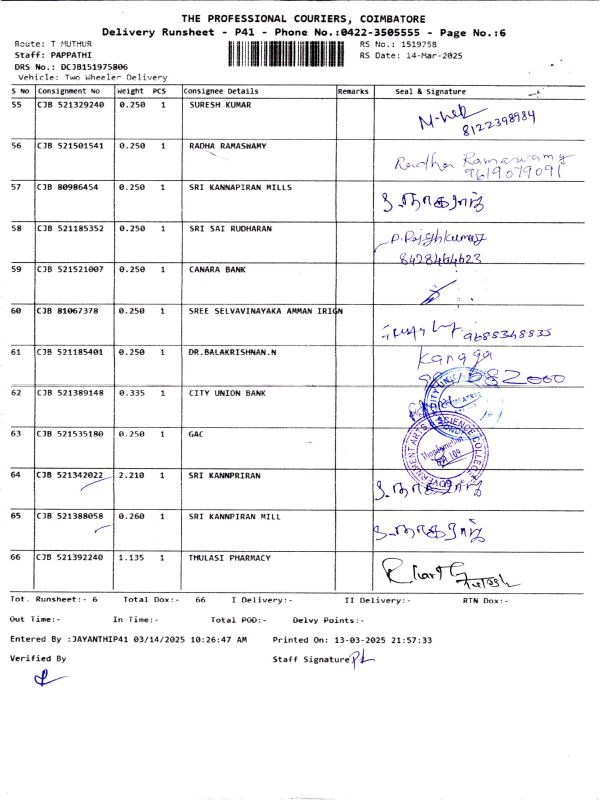 THE PROFESSIONAL COURIERS, COIMBATORE
Delivery Runsheet - P41 - Phone No.:0422-3505555 - Page No.:6
Route: T MUTHUR RS No.: 1519758
Staff: PAPPATHI RS Date: 14-Mar-2025
DRS No.: DCJB151975806
Vehicle: Two Wheeler Delivery
S No Consignment No Weight PCS Consignee Details Remarks Seal & Signature
55 CJB 521329240 0.250 1 SURESH KUMAR
8122398984
56 CJB 521501541 0.250 1 RADHA RAMASWAMY Radha Ramaswamy
9619079091
57 CJB 80986454 0.250 1 SRI KANNAPIRAN MILLS
58 CJB 521185352 0.250 1 SRI SAI RUDHARAN
8428464623
59 CJB 521521007 0.250 1 CANARA BANK
60 CJB 81067378 0.250 1 SREE SELVAVINAYAKA AMMAN IRIGN
9688348835
61 CJB 521185401 0.250 1 DR.BALAKRISHNAN.N Kanaga
62 CJB 521389148 0.335 1 CITY UNION BANK
63 CJB 521535180 0.250 1 GAC
GOVERNMENT ARTS & SCIENCE COLLEGE
64 CJB 521342022 2.210 1 SRI KANNPRIRAN
65 CJB 521388058 0.260 1 SRI KANNPIRAN MILL
66 CJB 521392240 1.135 1 THULASI PHARMACY
Tot. Runsheet:- 6 Total Dox:- 66 I Delivery:- II Delivery:- RTN Dox:-
Out Time:- In Time:- Total POD:- Delvy Points:-
Entered By :JAYANTHIP41 03/14/2025 10:26:47 AM Printed On: 13-03-2025 21:57:33
Verified By Staff Signature